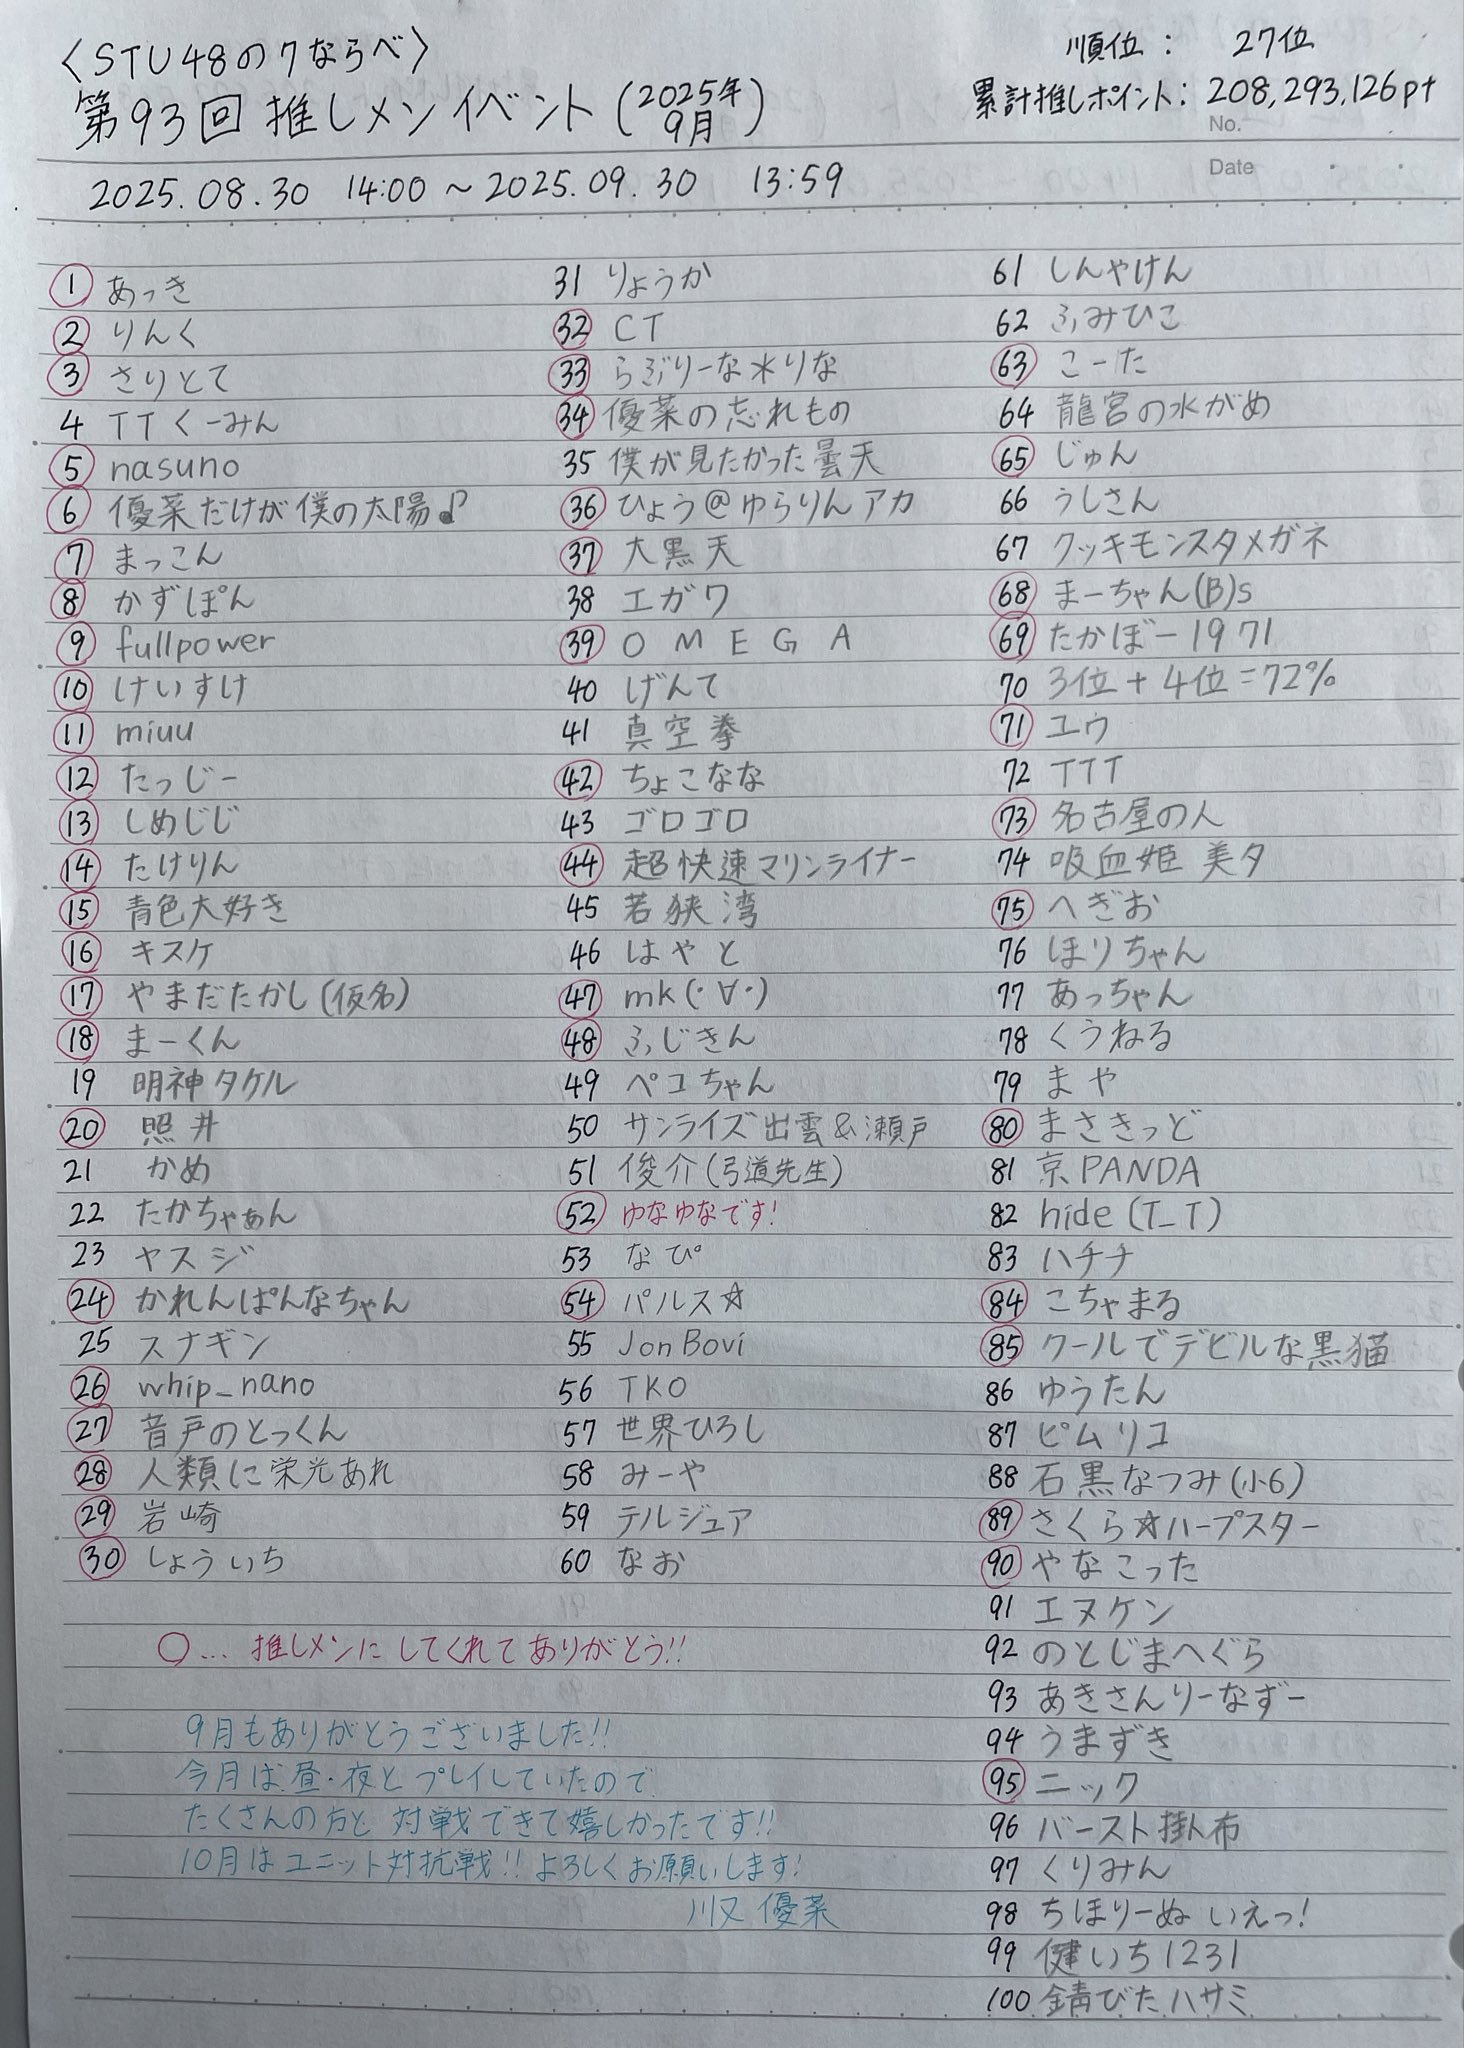 〈STU48の7ならべ〉
第93回 推しメンイベント(2025年9月)
順位： 27位
累計推しポイント： 208,293,126pt
No.
Date
2025.08.30 14:00 ~ 2025.09.30 13:59
1 あっき
2 りんく
3 さりとて
4 TTくーみん
5 nasuno
6 優菜だけが僕の太陽♪
7 まっこん
8 かずぽん
9 fullpower
10 けいすけ
11 miuu
12 たっじー
13 しめじじ
14 たけりん
15 青色大好き
16 キスケ
17 やまだたかし(仮名)
18 まーくん
19 明神タケル
20 照井
21 かめ
22 たかちゃぁん
23 ヤスジ
24 かれんぱんなちゃん
25 スナギン
26 whip_nano
27 音戸のとっくん
28 人類に栄光あれ
29 岩崎
30 しょういち
○… 推しメンにしてくれてありがとう!!
9月もありがとうございました!!
今月は昼・夜とプレイしていたので
たくさんの方と対戦できて嬉しかったです!!
10月はユニット対抗戦!! よろしくお願いします!
川又 優菜
31 りょうか
32 CT
33 らぶりーな*りな
34 優菜の忘れもの
35 僕が見たかった曇天
36 ひょう@ゆらりんアカ
37 大黒天
38 エガワ
39 OMEGA
40 げんて
41 真空拳
42 ちょこなな
43 ゴロゴロ
44 超快速マリンライナー
45 若狭湾
46 はやと
47 mk(・∀・)
48 ふじきん
49 ペコちゃん
50 サンライズ出雲&瀬戸
51 俊介(弓道先生)
52 ゆなゆなです!
53 なぴ
54 パルス☆
55 Jon Bovi
56 TKO
57 世界ひろし
58 みーや
59 テルジュア
60 なお
61 しんやけん
62 ふみひこ
63 こーた
64 龍宮の水がめ
65 じゅん
66 うしさん
67 クッキモンスタメガネ
68 まーちゃん(B)s
69 たかぼー1971
70 3位+4位=72%
71 ユウ
72 TTT
73 名古屋の人
74 吸血姫 美夕
75 へぎお
76 ほりちゃん
77 あっちゃん
78 くうねる
79 まや
80 まさきっど
81 京PANDA
82 hide(T_T)
83 ハチチ
84 こちゃまる
85 クールでデビルな黒猫
86 ゆうたん
87 ピムリコ
88 石黒なつみ(小6)
89 さくら☆ハープスター
90 やなこった
91 エヌケン
92 のとじまへぐら
93 あきさんりーなずー
94 うまずき
95 ニック
96 バースト掛布
97 くりみん
98 ちほりーぬ いえっ!
99 健いち1231
100 錆びたハサミ